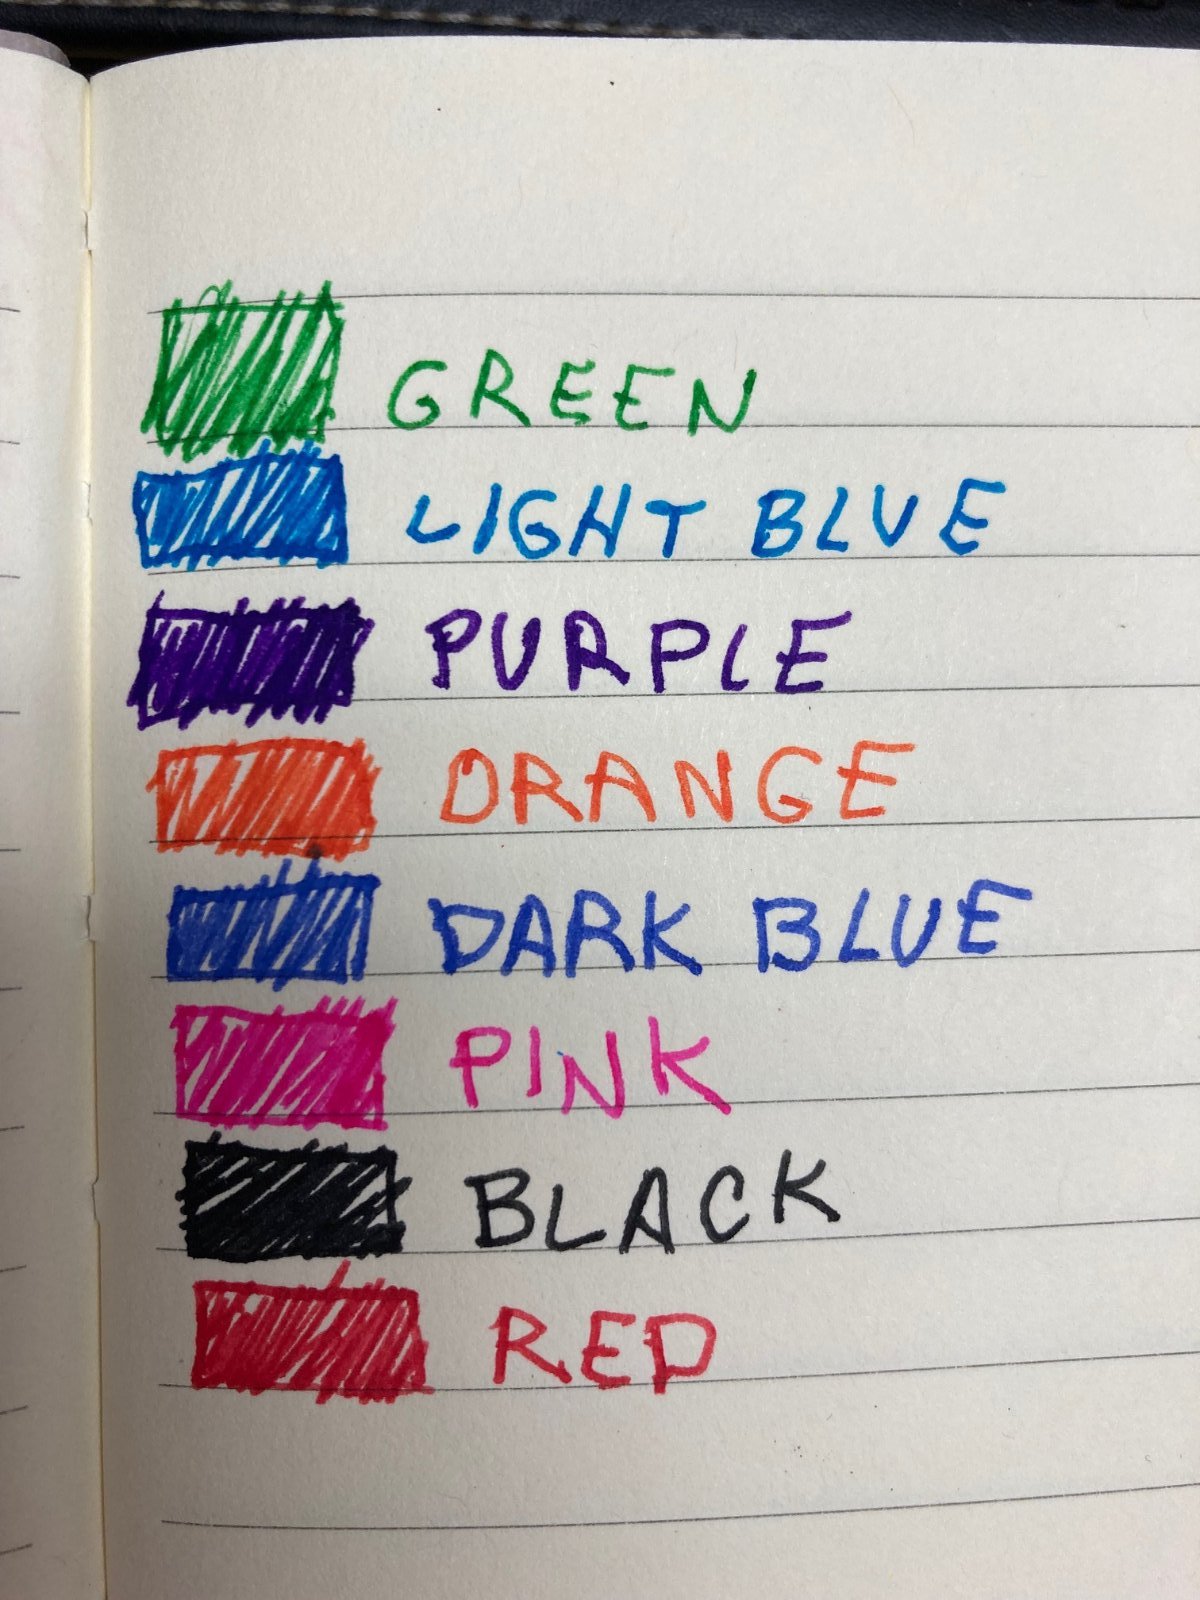 GREEN
LIGHT BLUE
PURPLE
ORANGE
DARK BLUE
PINK
BLACK
RED